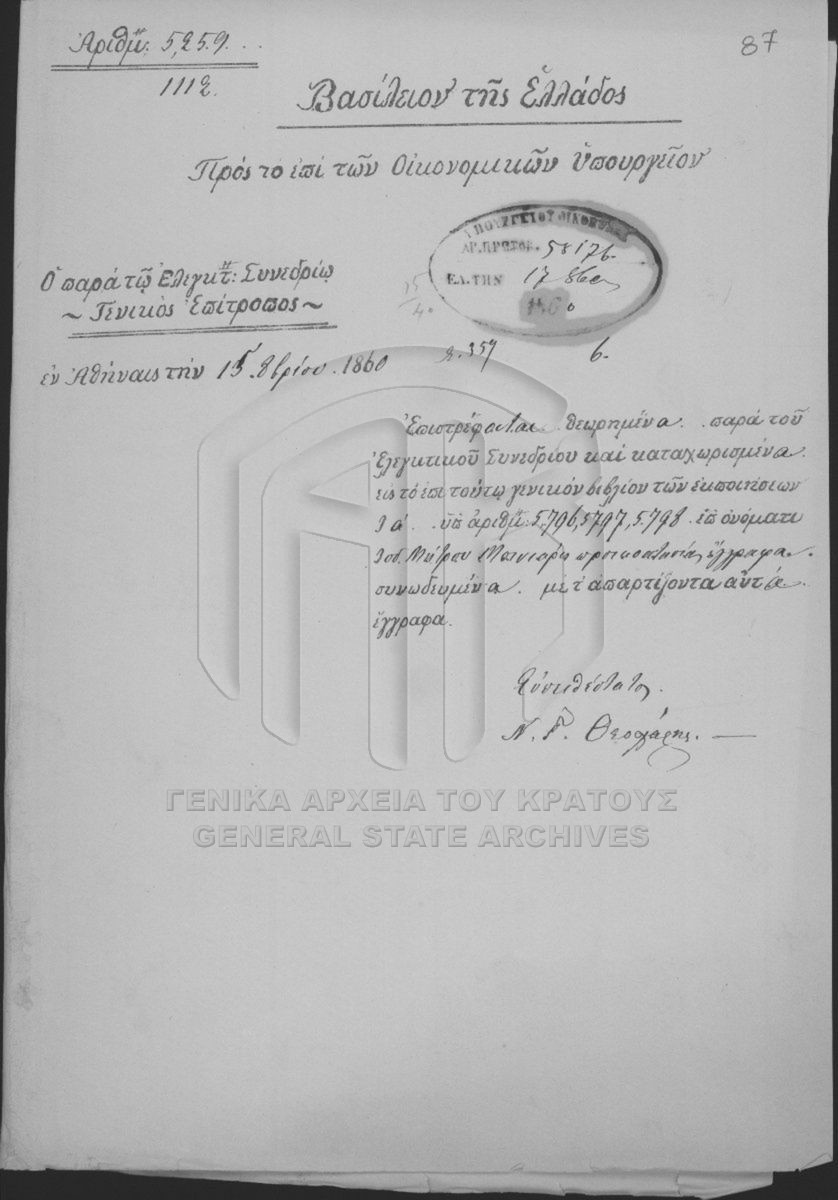 Ἀριθμ: 5,259...
1112
87
Βασίλειον τῆς Ἑλλάδος
Πρός τό ἐπί τῶν Οἰκονομικῶν Ὑπουργεῖον
ΥΠΟΥΡΓΕΙΟΥ ΟΙΚΟΝΟΜ
ΑΡ. ΠΡΩΤΟΚ. 58176.
ΕΛ. ΤΗΝ 17 8βρ
1860
Ὁ παρά τῷ Ἐλεγκτ: Συνεδρίῳ
~ Γενικὸς Ἐπίτροπος ~
ἐν Ἀθήναις τήν 15 8βρίου. 1860
2.357 6.
Ἐπιστρέφονται θεωρημένα παρά τοῦ
Ἐλεγκτικοῦ Συνεδρίου καί καταχωρισμένα
εἰς τό ἐπί τούτῳ γενικόν βιβλίον τῶν ἐκποιήσεων
ὑπ ἀριθμ: 5,796, 5797, 5.798 ἐπ ὀνόματι
Μήτρου ἔγγραφα.
συνωδευμένα. μέ τ' ἀπαρτίζοντα αὐτά
ἔγγραφα.
Εὐπειθέστατος
Ν. Γ. Θεοχάρης.
ΓΕΝΙΚΑ ΑΡΧΕΙΑ ΤΟΥ ΚΡΑΤΟΥΣ
GENERAL STATE ARCHIVES